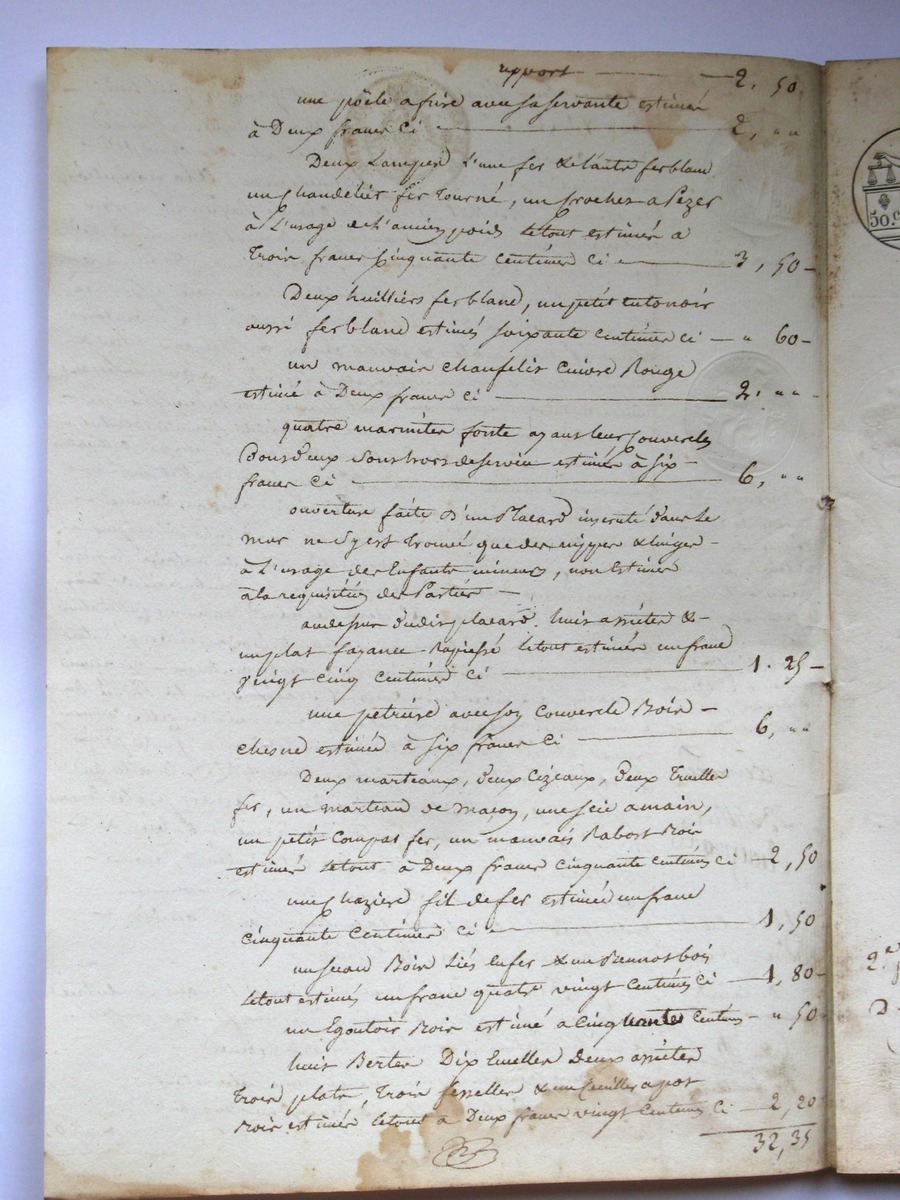 report — 2, 50
une pöele a frire avec sa servante estimée
à Deux francs Ci — 2, " "
Deux Lampes l'une fer & l'autre ferblanc
un Chandelier fer Tourné, un crochet a Pezer
à L'usage de L'ancien poids le tout estimée a
Trois francs Cinquante Centimes Ci — 3, 50 —
Deux huilliers ferblanc, un petit entonoir
aussi ferblanc estimés soixante Centimes Ci — " 60 —
un mauvais Chaufelit Cuivre Rouge
estimé à Deux francs Ci — 2, " "
quatre marmites fonte ayant leurs Couvercles
Dont Deux Sont hors de service estimées à Six —
francs Ci — 6, " "
ouverture faite D'un Placard incruté dans Le
mur ne S'y est Trouvé que des nippes & linges —
à L'usage des Enfants mineurs, non Estimés
a la requisition des Parties —
au dessus dudit placard. huit assiettes & —
un plat fayance le tout estimés un franc
vingt cinq Centimes Ci — 1. 25 —
une petriere avec son Couvercle Bois —
chesne estimée à Six francs Ci — 6, " "
Deux marteaux, deux Cizeaux, deux Truelles
fer, un marteau de maçon, une Scie a main,
un petit Compas fer, un mauvais Rabost Bois
estimés le tout à Deux francs cinquante Centimes Ci — 2, 50
une chaziere fil de fer estimée un franc
Cinquante Centimes Ci — 1, 50
un Seau Bois liés en fer & un bois
le tout estimés un franc quatre vingt Centimes Ci — 1, 80 —
un Egoutoir Bois estimé a Cinquante Centimes — " 50
huit Bertes Dix Ecuelles deux assiettes
Trois plats, Trois fesselles & une Cuilliere a pot
Bois estimés le tout a Deux francs vingt Centimes Ci — 2, 20
32, 35
50.c